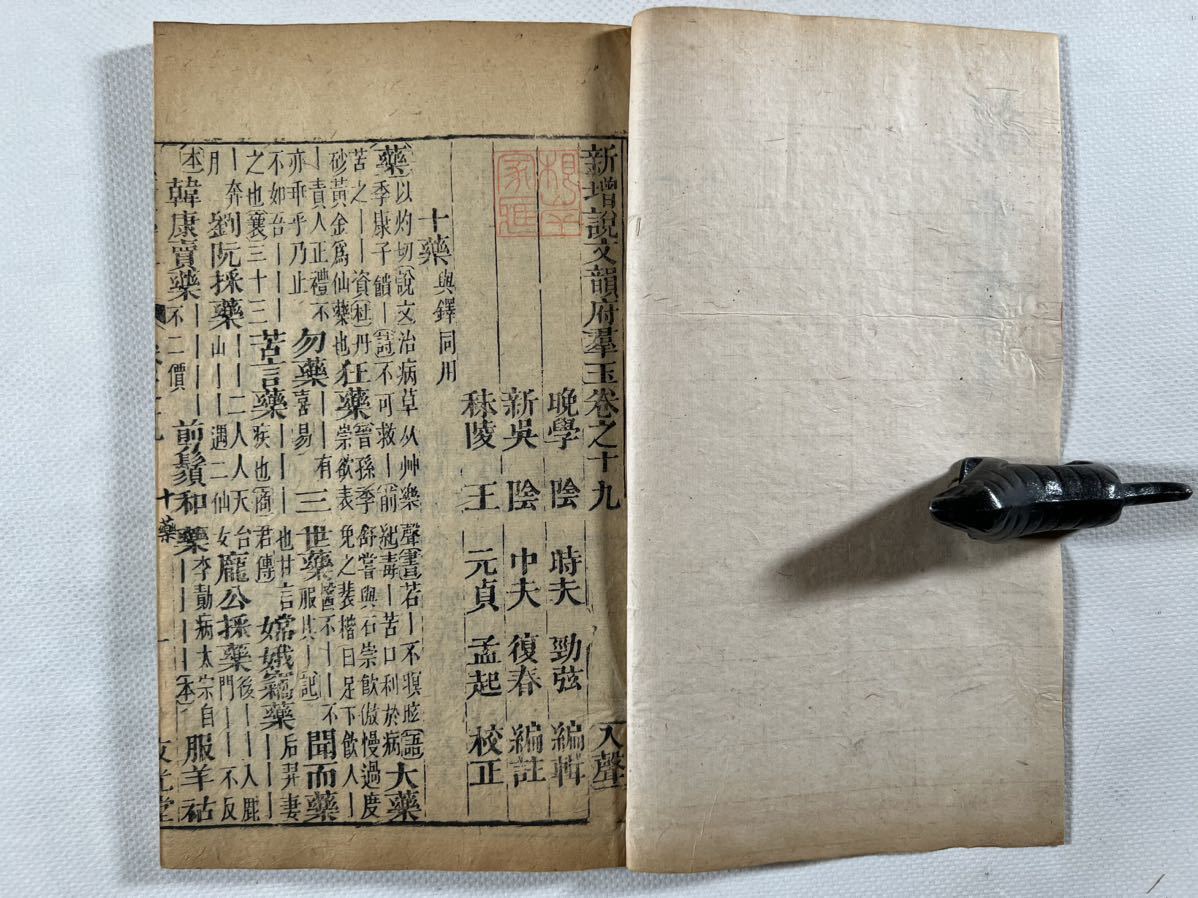 新增說文韻府羣玉卷之十九 入聲
晚學 陰 時夫 勁弦 編輯
新吳 陰 中夫 復春 編註
秣陵 王 元貞 孟起 校正
十藥 與鐸同用
藥 以灼切說文治病草从艸樂聲書若丨不瞑眩語季康子饋丨詩不可救丨前紀毒丨苦口利於病 大藥
苦之丨丨資杜丹砂黃金爲仙藥也 狂藥 晉孫季舒嘗與石崇飲傲慢過度崇欲表免之裴楷曰足下飲人丨
丨責人正禮不亦乖乎乃止 勿藥 丨丨有喜易 三世藥 醫不丨丨不服其丨記 聞而藥
不如吾丨丨丨之也襄三十三 苦言藥 丨丨丨也甘言疾也商君傳 嫦娥竊藥 丨丨丨丨后羿妻
丨奔月 劉阮採藥 丨丨二人人天台山丨丨遇二仙女 龐公採藥 後丨丨人鹿門丨丨不反
本 韓康賣藥 丨丨丨丨不二價 剪鬚和藥 丨丨丨丨李勣病太宗自本 服羊祜
十藥 一